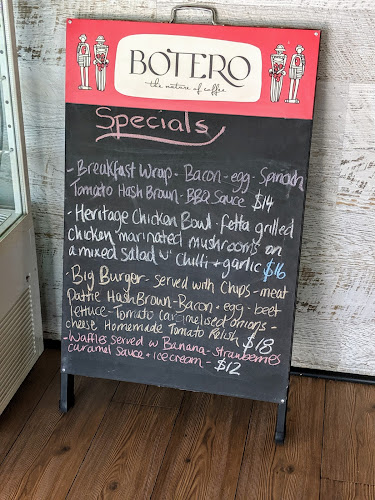 BOTERO
the nature of coffee
Specials
- Breakfast Wrap - Bacon - egg - Spinach
Tomato Hash Brown - BBQ Sauce $14
- Heritage Chicken Bowl - fetta grilled
chicken marinated mushrooms on
a mixed salad w' chilli + garlic $16
- Big Burger - served with chips - meat
Pattie Hash Brown - Bacon - egg - beet
lettuce - Tomato caramelised onions -
cheese Homemade Tomato Relish $18
- Waffles served w Banana - strawberries
caramel sauce + icecream - $12